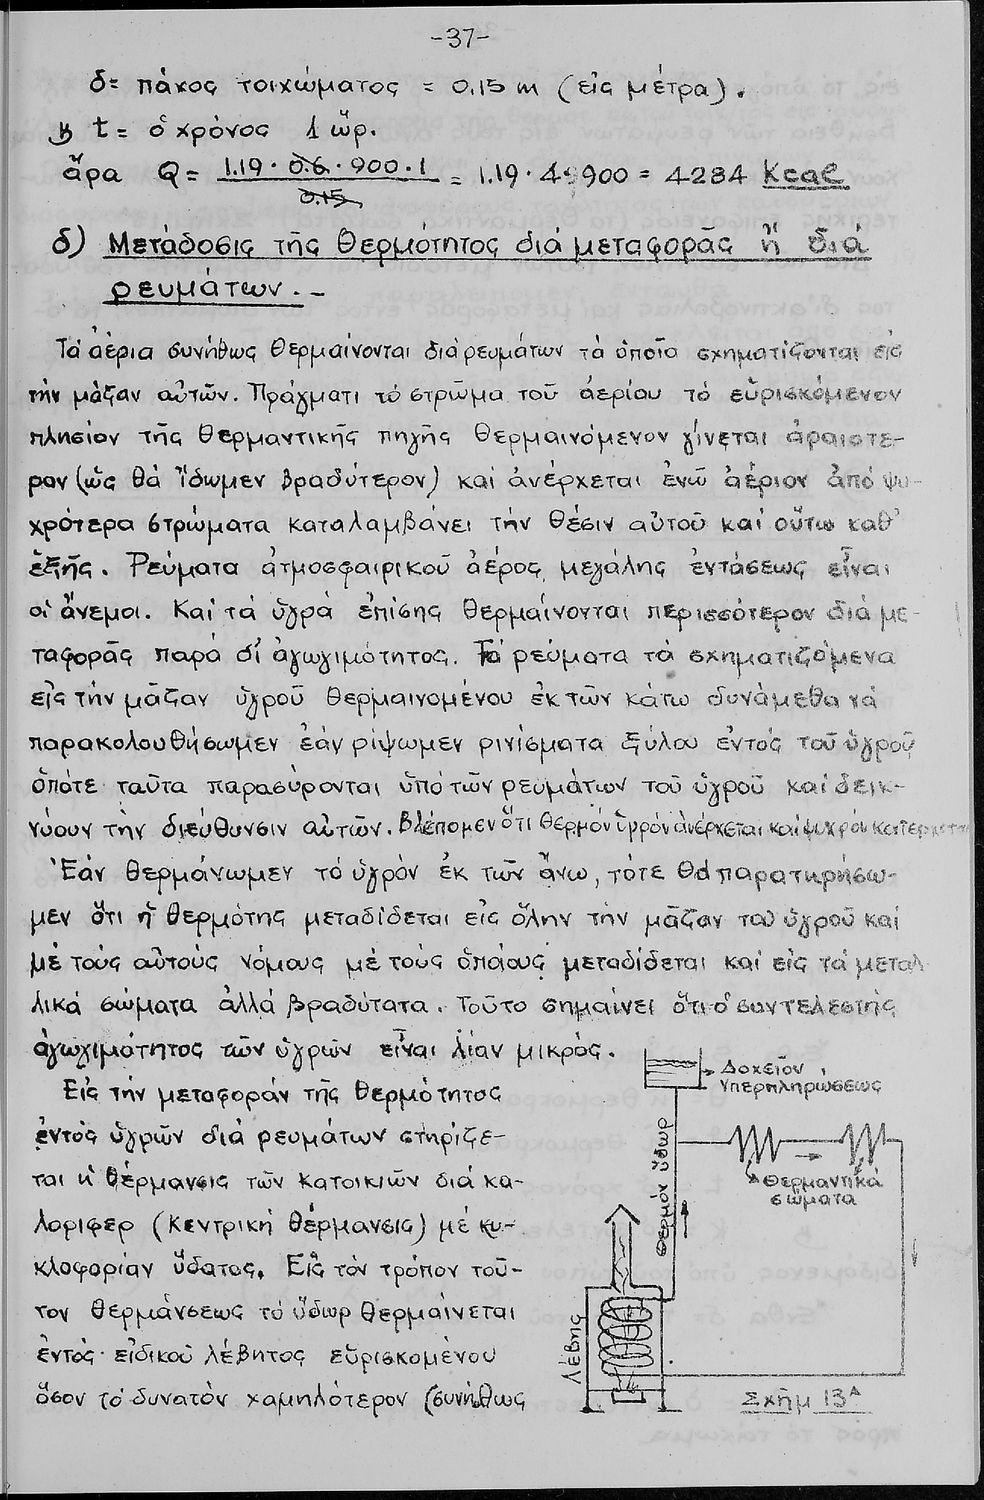 -37-
δ= πάχος τοιχώματος = 0.15 m (εἰς μέτρα).
t = ὁ χρόνος 1 ὥρ.
ἄρα Q = 1.19 · 0.6 · 900 · 1 / 0.15 = 1.19 · 4 900 = 4284 Kcal
δ) Μετάδοσις τῆς θερμότητος διά μεταφορᾶς ἤ διά
ρευμάτων.-
Τά ἀέρια συνήθως θερμαίνονται διά ρευμάτων τά ὁποῖα σχηματίζονται εἰς
τήν μᾶζαν αὐτῶν. Πράγματι τό στρῶμα τοῦ ἀερίου τό εὑρισκόμενον
πλησίον τῆς θερμαντικῆς πηγῆς θερμαινόμενον γίνεται ἀραιοτε-
ρον (ὡς θά ἴδωμεν βραδύτερον) καί ἀνέρχεται ἐνῶ ἀέριον ἀπό ψυ-
χρότερα στρώματα καταλαμβάνει τήν θέσιν αὐτοῦ καί οὕτω καθ'
ἑξῆς. Ρεύματα ἀτμοσφαιρικοῦ ἀέρος μεγάλης ἐντάσεως εἶναι
οἱ ἄνεμοι. Καί τά ὑγρά ἐπίσης θερμαίνονται περισσότερον διά με-
ταφορᾶς παρά δι' ἀγωγιμότητος. Τά ρεύματα τά σχηματιζόμενα
εἰς τήν μᾶζαν ὑγροῦ θερμαινομένου ἐκ τῶν κάτω δυνάμεθα νά
παρακολουθήσωμεν ἐάν ρίψωμεν ρινίσματα ξύλου ἐντός τοῦ ὑγροῦ
ὁπότε ταῦτα παρασύρονται ὑπό τῶν ρευμάτων τοῦ ὑγροῦ καί δεικ-
νύουν τήν διεύθυνσιν αὐτῶν. Βλέπομεν ὅτι θερμόν ὑγρόν ἀνέρχεται καί ψυχρόν κατέρχεται
Ἐάν θερμάνωμεν τό ὑγρόν ἐκ τῶν ἄνω, τότε θά παρατηρήσω-
μεν ὅτι ἡ θερμότης μεταδίδεται εἰς ὅλην τήν μᾶζαν τοῦ ὑγροῦ καί
μέ τούς αὐτούς νόμους μέ τούς ὁποίους μεταδίδεται καί εἰς τά μεταλ-
λικά σώματα ἀλλά βραδύτατα. Τοῦτο σημαίνει ὅτι ὁ συντελεστής
ἀγωγιμότητος τῶν ὑγρῶν εἶναι λίαν μικρός.
Εἰς τήν μεταφοράν τῆς θερμότητος
ἐντός ὑγρῶν διά ρευμάτων στηρίζε-
ται ἡ θέρμανσις τῶν κατοικιῶν διά κα-
λοριφέρ (κεντρική θέρμανσις) μέ κυ-
κλοφορίαν ὕδατος. Εἰς τόν τρόπον τοῦ-
τον θερμάνσεως τό ὕδωρ θερμαίνεται
ἐντός εἰδικοῦ λέβητος εὑρισκομένου
ὅσον τό δυνατόν χαμηλότερον (συνήθως
Δοχεῖον
ὑπερπληρώσεως
Θερμαντικά
σώματα
Θερμόν ὕδωρ
Λέβης
Σχῆμ 13Α